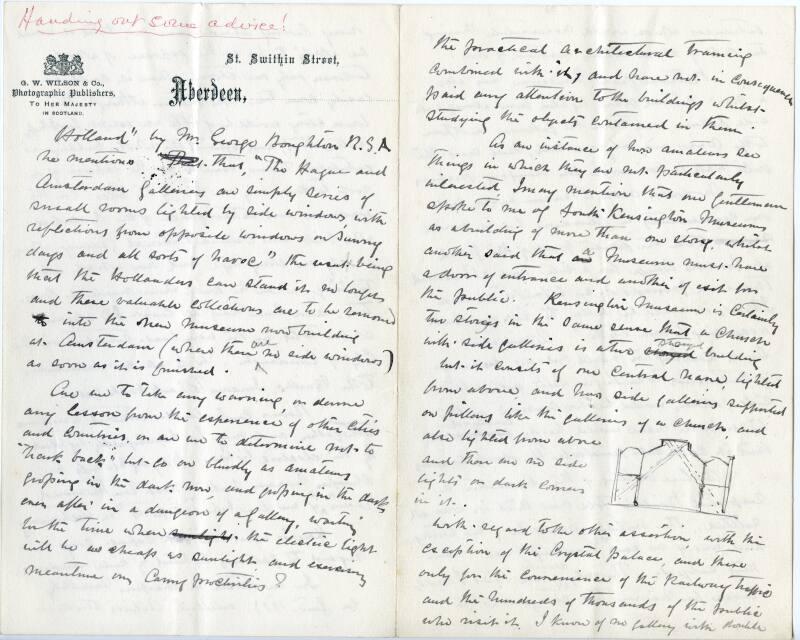 Handing out some advice!
G. W. WILSON & Co.,
Photographic Publishers,
TO HER MAJESTY
IN SCOTLAND.
St. Swithin Street,
Aberdeen,
Holland" by Mr. George Boughton R.S.A
he mentions that, "The Hague and
Amsterdam Galleries are simply series of
small rooms lighted by side windows with
reflections from opposite windows on sunny
days and all sorts of havoc" the result being
that the Hollanders can stand it no longer
and these valuable collections are to be removed
into the new Museum now building
at Amsterdam (where there are no side windows)
as soon as it is finished.
Are we to take any warning or derive
any lesson from the experience of other Cities
and Countries, or are we to determine not to
"hark back" but go on blindly as amateurs
groping in the dark now, and groping in the dark
ever after in a dungeon of a Gallery, waiting
for the time when sunlight the electric light
will be as cheap as sunlight, and excusing
meantime our Canny proclivities?
the practical architectural training
combined with it, and have not in consequence
paid any attention to the buildings whilst
studying the objects contained in them.
As an instance of how amateurs see
things in which they are not particularly
interested I may mention that one gentleman
spoke to me of South Kensington Museum
as a building of more than one story, whilst
another said that a Museum must have
a door of entrance and another of exit for
the public. Kensington Museum is certainly
two stories in the same sense that a Church
with side galleries is a two storyed building
but it consists of one Central nave, lighted
from above and has side galleries supported
on pillars like the galleries of a church, and
also lighted from above
and there are no side
lights or dark corners
in it.
With regard to the other assertion with the
exception of the Crystal Palace, and there
only for the convenience of the Railway traffic
and the hundreds of thousands of the public
who visit it, I know of no gallery with double